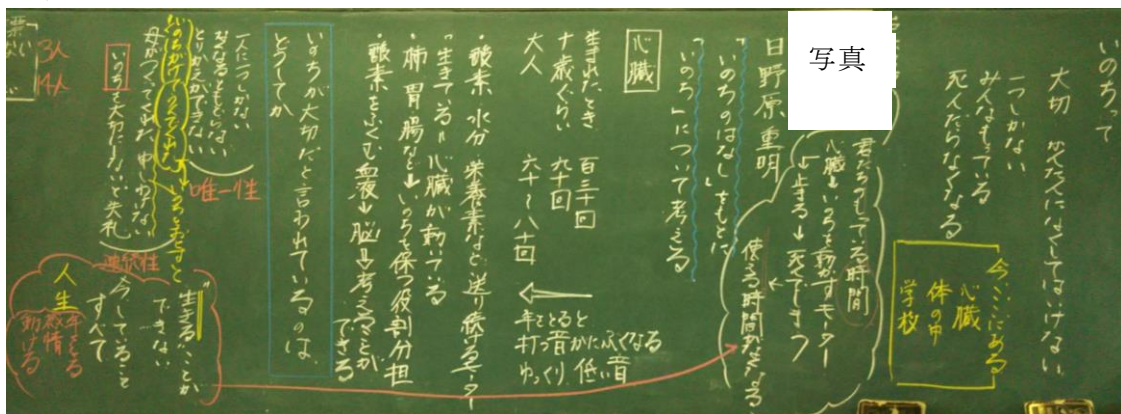 いのちって
大切 かんたんになくしてはいけない
一つしかない
みんなもっている
死んだらなくなる
今ここにある
心臓
体の中
学校
写真
君たちのもっている時間
心臓→いのちを動かすモーター
→止まる→死んでしまう
使える時間がなくなる
日野原重明
「いのちのはなし」をもとに
「いのち」について考える
心臓
生まれたとき 百三十回
十歳ぐらい 九十回
大人 六十〜八十回
年をとると
打つ音がにぶくなる
ゆっくり 低い音
・酸素、水分、栄養素など送り続けるモーター
・生きている=心臓が動いている
・肺、胃腸など→いのちを保つ役割分担
・酸素をふくむ血液→脳→考えることが
できる
いのちが大切だと言われているのは、
どうしてか
一人に一つしかない
なくなるともどらない
とりかえができない
唯一性
いのちがけでうんでくれた
母がつくってくれた
いのちを大切にしないと失礼
連続性
"生きる"ことが
できない
今、していること
すべて
人生
年をとる
表情
動ける
3人
14人